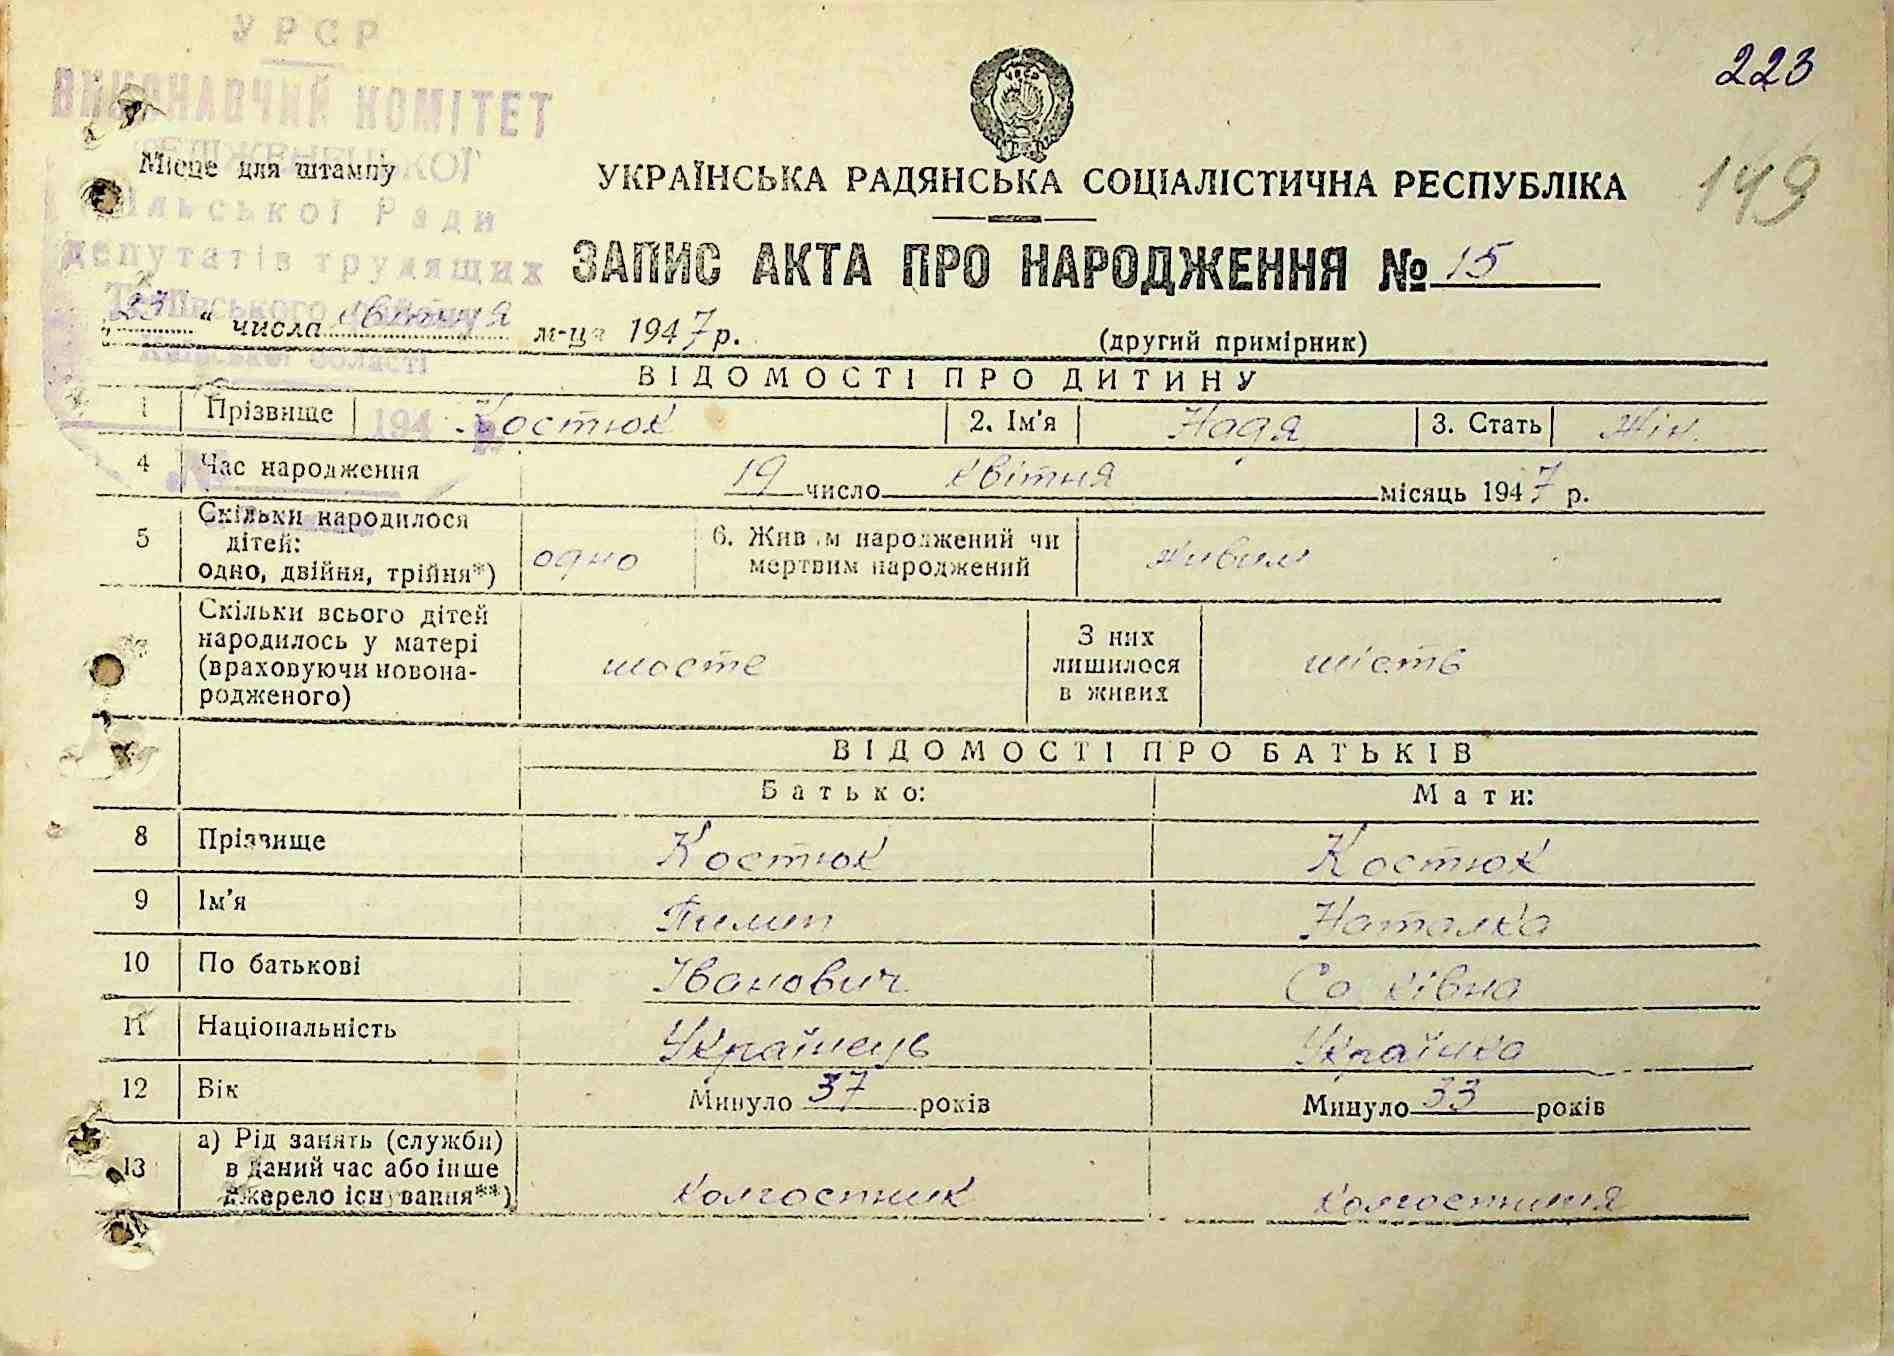 УРСР
ВИКОНАВЧИЙ КОМІТЕТ
223
Місце для штампу
УКРАЇНСЬКА РАДЯНСЬКА СОЦІАЛІСТИЧНА РЕСПУБЛІКА
149
Сільської Ради
депутатів трудящих
ЗАПИС АКТА ПРО НАРОДЖЕННЯ № 15
„23“ числа квітня м-ця 1947 р.
(другий примірник)
Київської області
ВІДОМОСТІ ПРО ДИТИНУ
1 Прізвище Костюк 2. Ім'я Надя 3. Стать жін.
194
4 Час народження 19 число квітня місяць 1947 р.
№
5 Скільки народилося дітей: одно, двійня, трійня*) одно 6. Живим народжений чи мертвим народжений живим
Скільки всього дітей народилось у матері (враховуючи новонародженого) шосте З них лишилося в живих шість
ВІДОМОСТІ ПРО БАТЬКІВ
Батько: Мати:
8 Прізвище Костюк Костюк
9 Ім'я Пилип Наталка
10 По батькові Іванович Савківна
11 Національність Українець Українка
12 Вік Минуло 37 років Минуло 33 років
13 а) Рід занять (служби) в даний час або інше джерело існування**) колгостник колгостниця